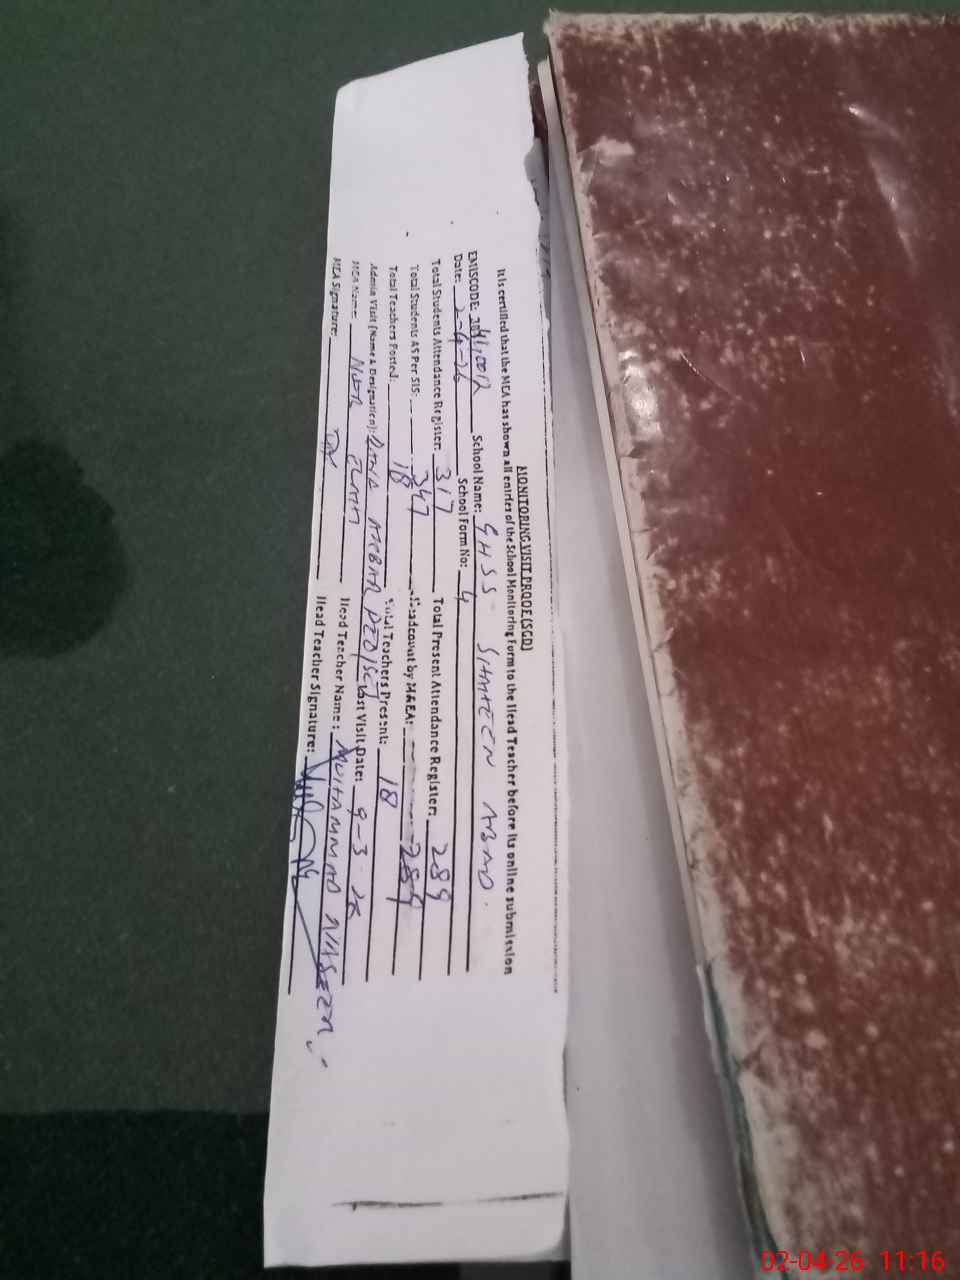 MONITORING VISIT PROOF (SGD)
It is certified that the MEA has shown all entries of the School Monitoring Form to the Head Teacher before its online submission
EMISCODE: School Name: GHSS SHAHEEN ABAD.
Date: 2-4-26 School Form No: 4
Total Students Attendance Register: 317 Total Present Attendance Register: 289
Total Students AS Per SIS: 347 Headcount by M&EA: 289
Total Teachers Posted: 18 Total Teachers Present: 18
Admin Visit (Name & Designation): AKBAR Last Visit Date: 9-3-26
MEA Name: Head Teacher Name: MUHAMMAD NASEEM
MEA Signature: Head Teacher Signature:
02-04-26 11:16